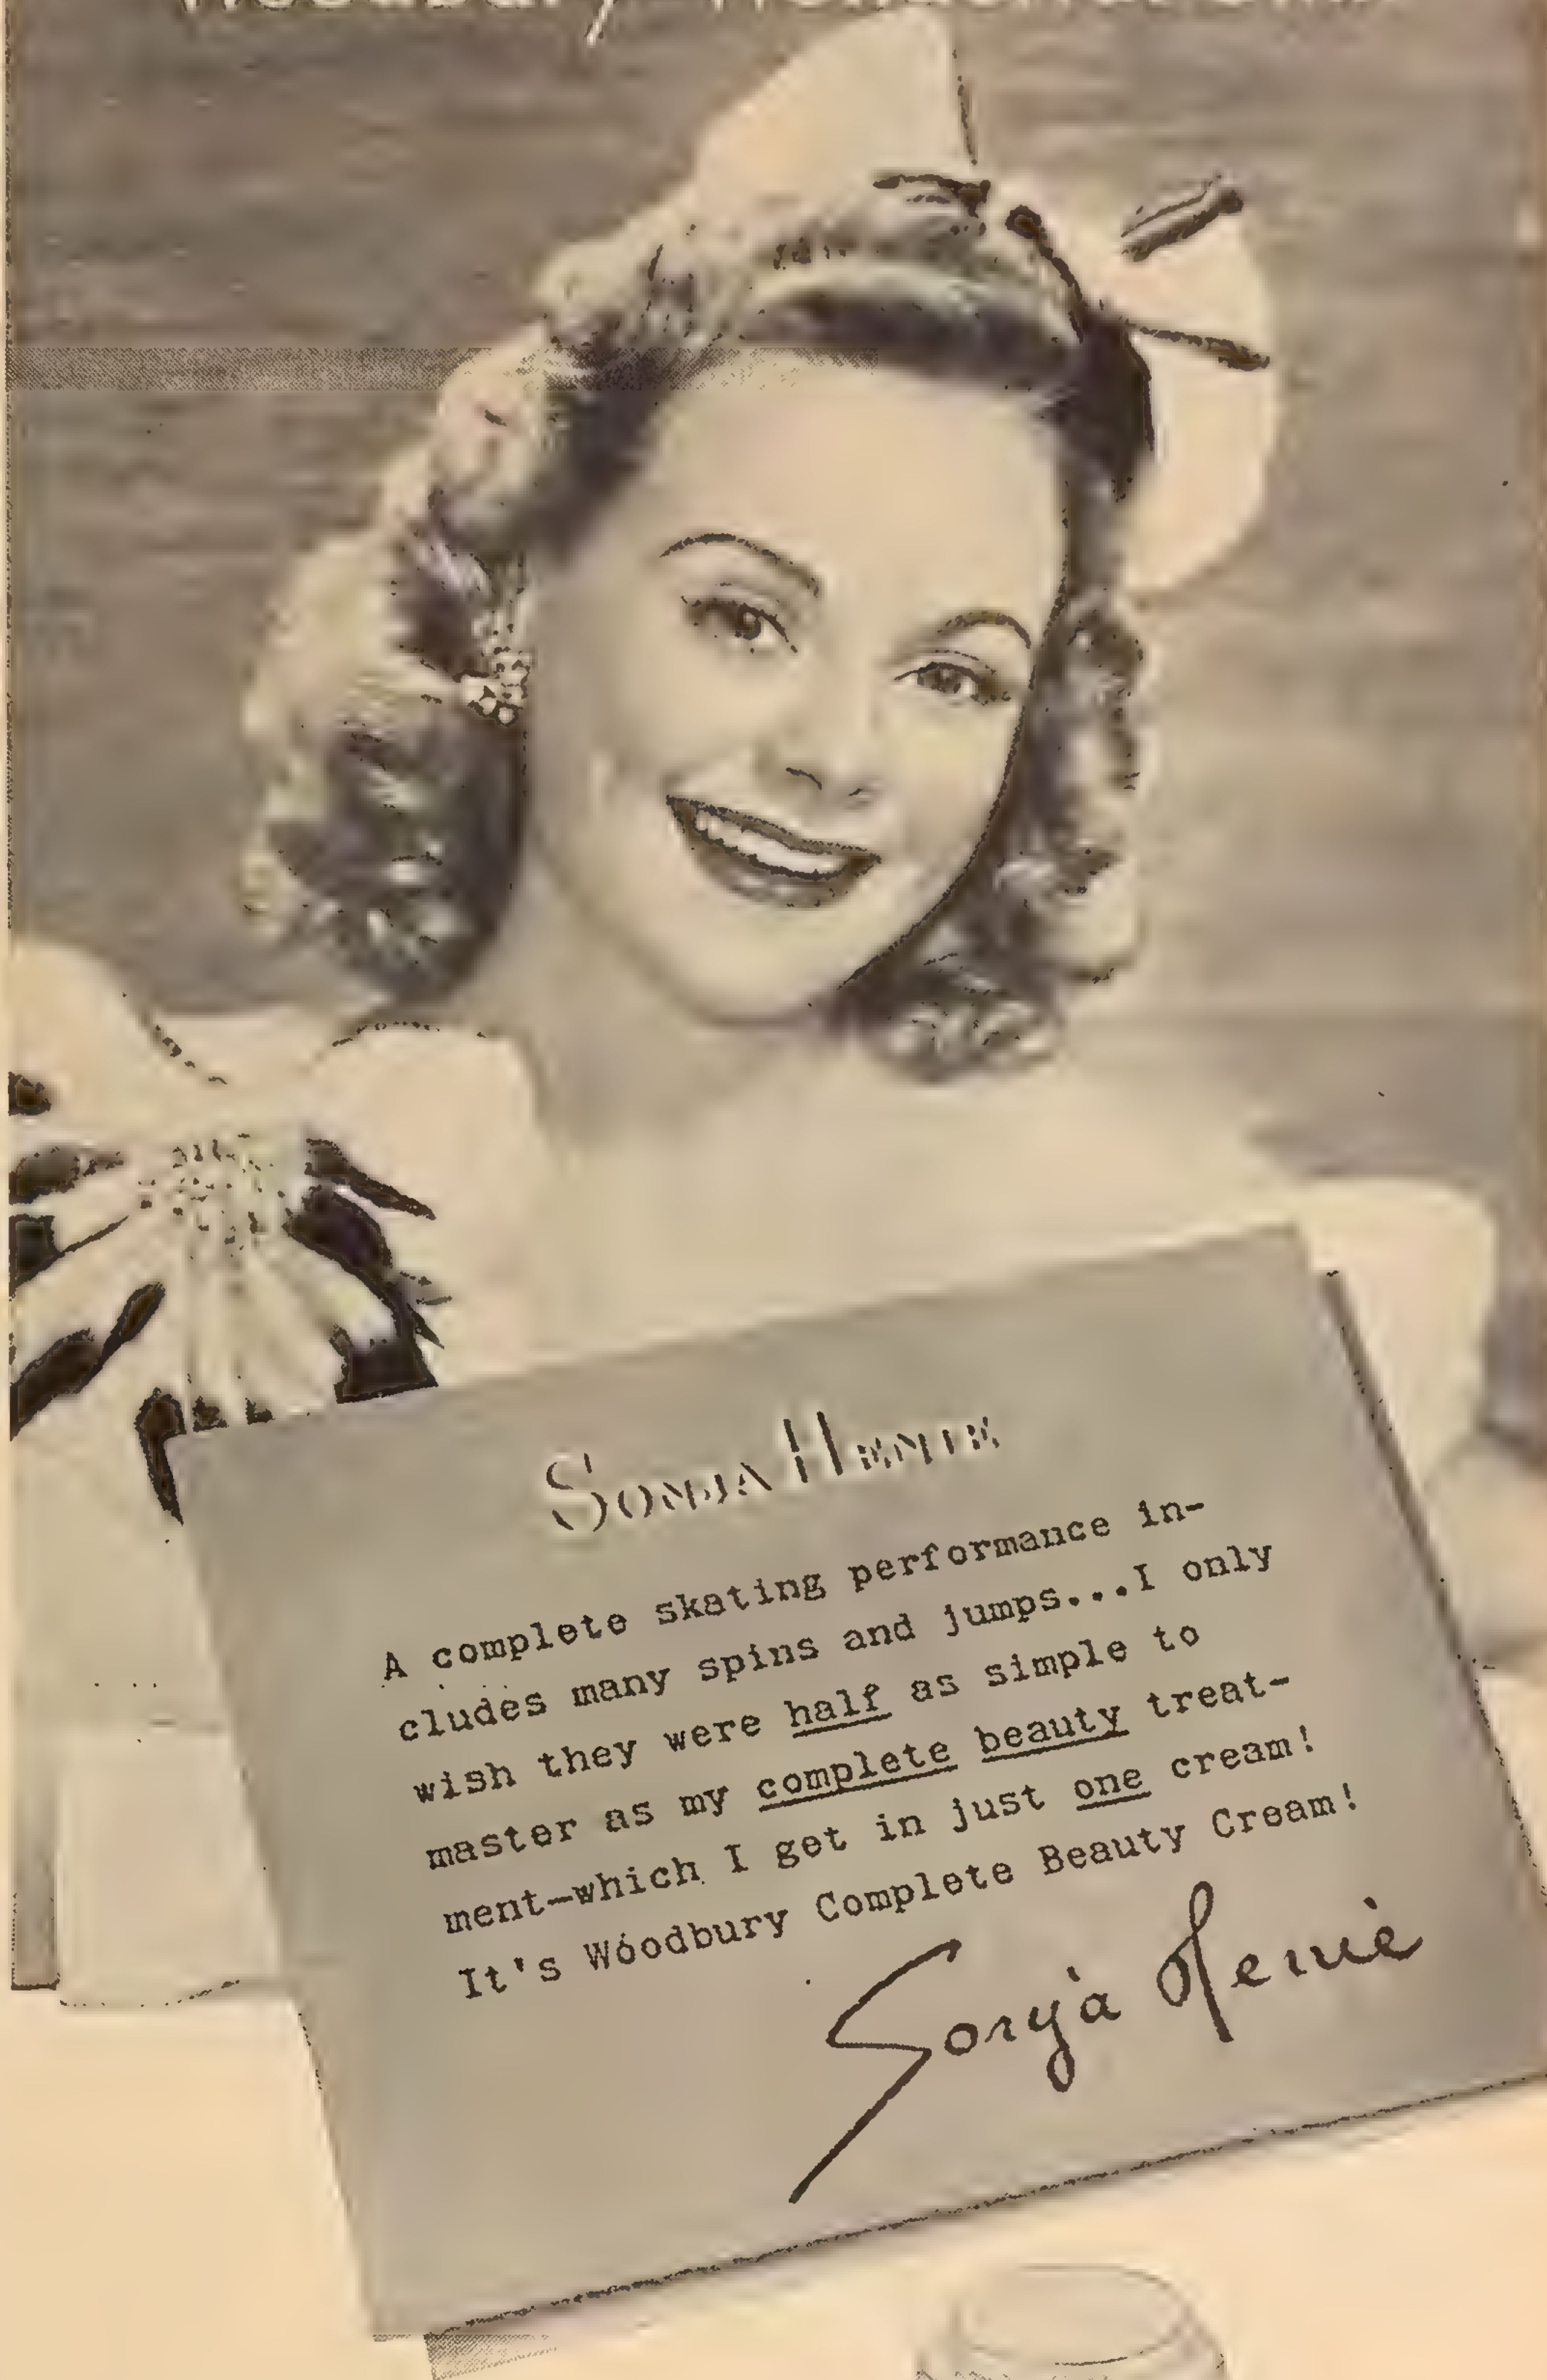 Sonja Henie
A complete skating performance in-
cludes many spins and jumps...I only
wish they were half as simple to
master as my complete beauty treat-
ment—which I get in just one cream!
It's Woodbury Complete Beauty Cream!
Sonja Henie